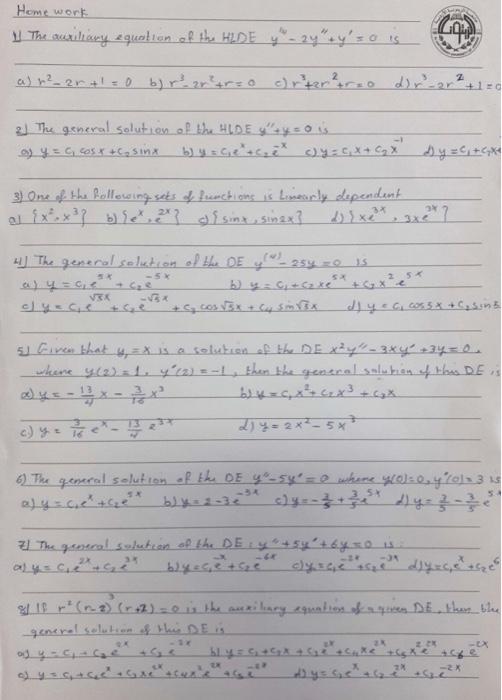 Home work
1) The auxiliary equation of the HLDE y''' - 2y'' + y' = 0 is
a) r² - 2r + 1 = 0 b) r³ - 2r² + r = 0 c) r³ + 2r² + r = 0 d) r³ - 2r² + 1 = 0
2) The general solution of the HLDE y'' + y = 0 is
a) y = c₁ cos x + c₂ sin x b) y = c₁eˣ + c₂e⁻ˣ c) y = c₁x + c₂x⁻¹ d) y = c₁ + c₂x
3) One of the following sets of functions is linearly dependent
a) {x², x³} b) {eˣ, e²ˣ} c) {sin x, sin 2x} d) {xe³ˣ, 3xe³ˣ}
4) The general solution of the DE y⁽⁴⁾ - 25y = 0 is
a) y = c₁e⁵ˣ + c₂e⁻⁵ˣ b) y = c₁ + c₂xe⁵ˣ + c₃x²e⁵ˣ
c) y = c₁e^√5x + c₂e^-√5x + c₃ cos √5x + c₄ sin √5x d) y = c₁ cos 5x + c₂ sin 5
5) Given that y₁ = x is a solution of the DE x²y'' - 3xy' + 3y = 0,
where y(2) = 1, y'(2) = -1, then the general solution of this DE is
a) y = -13/4 x - 3/16 x³ b) y = c₁x² + c₂x³ + c₃x
c) y = 3/16 eˣ - 13/4 e³ˣ d) y = 2x² - 5x³
6) The general solution of the DE y'' - 5y' = 0 where y(0) = 0, y'(0) = 3 is
a) y = c₁eˣ + c₂e⁵ˣ b) y = 2 - 3e⁻⁵ˣ c) y = -3/5 + 3/5 e⁵ˣ d) y = 3/5 - 3/5 e⁵ˣ
7) The general solution of the DE: y'' + 5y' + 6y = 0 is:
a) y = c₁e²ˣ + c₂e³ˣ b) y = c₁e⁻ˣ + c₂e⁻⁶ˣ c) y = c₁e⁻²ˣ + c₂e⁻³ˣ d) y = c₁eˣ + c₂e⁶
8) If r²(r-2)³(r+2) = 0 is the auxiliary equation of a given DE, then the
general solution of this DE is
a) y = c₁ + c₂e²ˣ + c₃e⁻²ˣ b) y = c₁ + c₂x + c₃e²ˣ + c₄xe²ˣ + c₅x²e²ˣ + c₆e⁻²ˣ
c) y = c₁ + c₂e²ˣ + c₃xe²ˣ + c₄x²e²ˣ + c₅e⁻²ˣ d) y = c₁eˣ + c₂e²ˣ + c₃e⁻²ˣ